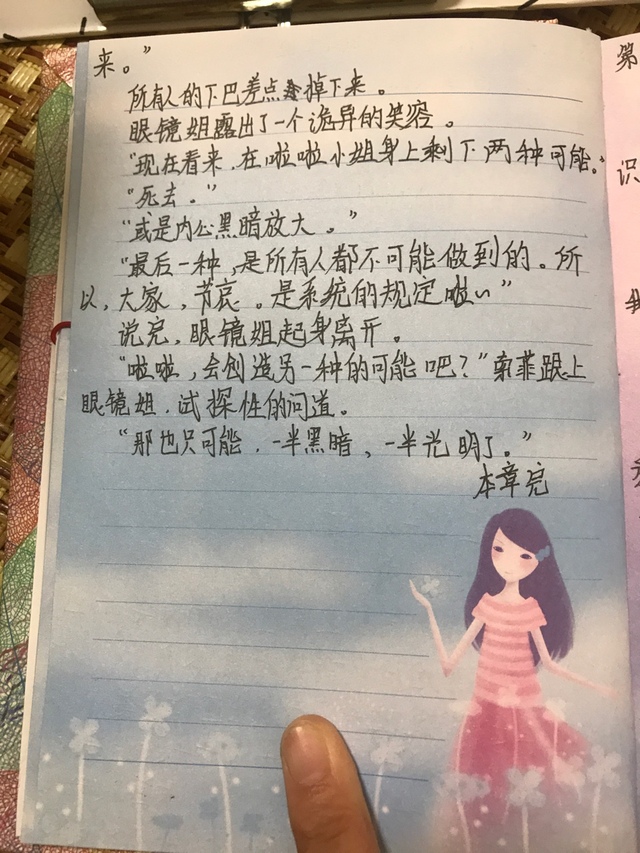 来。”
所有人的下巴差点掉下来。
眼镜姐露出了一个诡异的笑容。
“现在看来,在啦啦小姐身上剩下两种可能。”
“死去。”
“或是内心黑暗放大。”
“最后一种,是所有人都不可能做到的。所
以,大家,节哀。是系统的规定啦~”
说完,眼镜姐起身离开。
“啦啦,会创造另一种的可能吧?”索菲跟上
眼镜姐,试探性的问道。
“那也只可能,一半黑暗,一半光明了。”
本章完
第
识